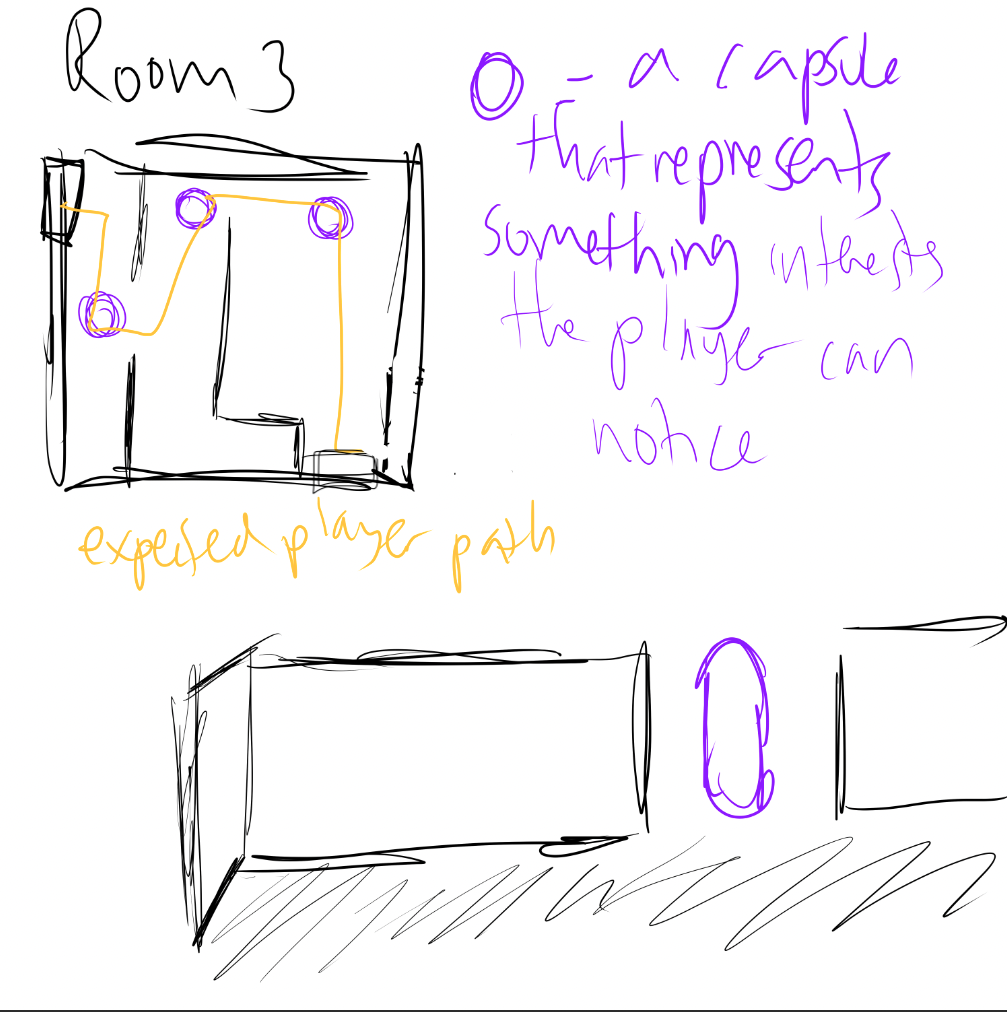 Room 3
- a capsule
that represents
something intherests
the player can
notice
expected player path